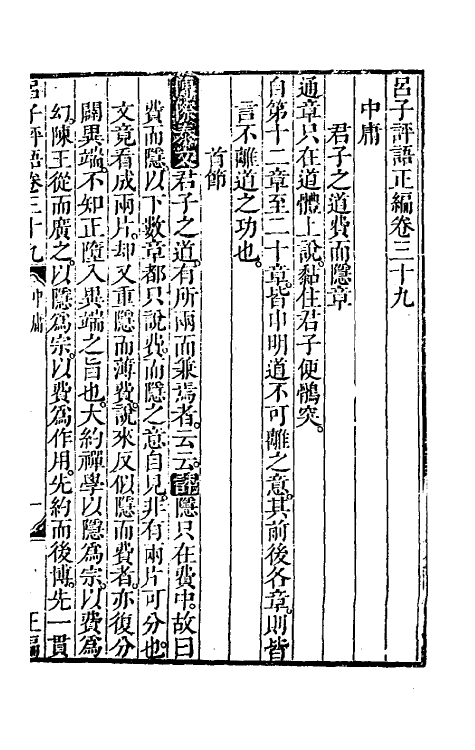 呂子評語正編卷三十九
中庸
君子之道費而隱章
通章只在道體上說。黏住君子便鶻突。
自第十二章至二十章。皆申明道不可離之意。其前後各章。則皆
言不離道之功也。
首節
君子之道。有所兩而兼焉者。云云。評隱只在費中。故曰
費而隱。以下數章都只說費。而隱之意自見。非有兩片可分也。
文竟看成兩片。却又重隱而薄費。說來反似隱而費者。亦復分
闢異端。不知正墮入異端之旨也。大約禪學以隱爲宗。以費爲
幻。陳王從而廣之。以隱爲宗。以費爲作用。先約而後博。先一貫
呂子評語卷三十九
中庸
一
正編